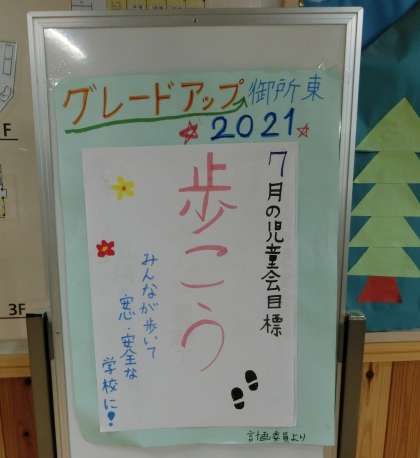 グレードアップ御所東
2021
7月の児童会目標
歩こう
みんなが歩いて
安心・安全な
学校に!
計画委員より
F
3F